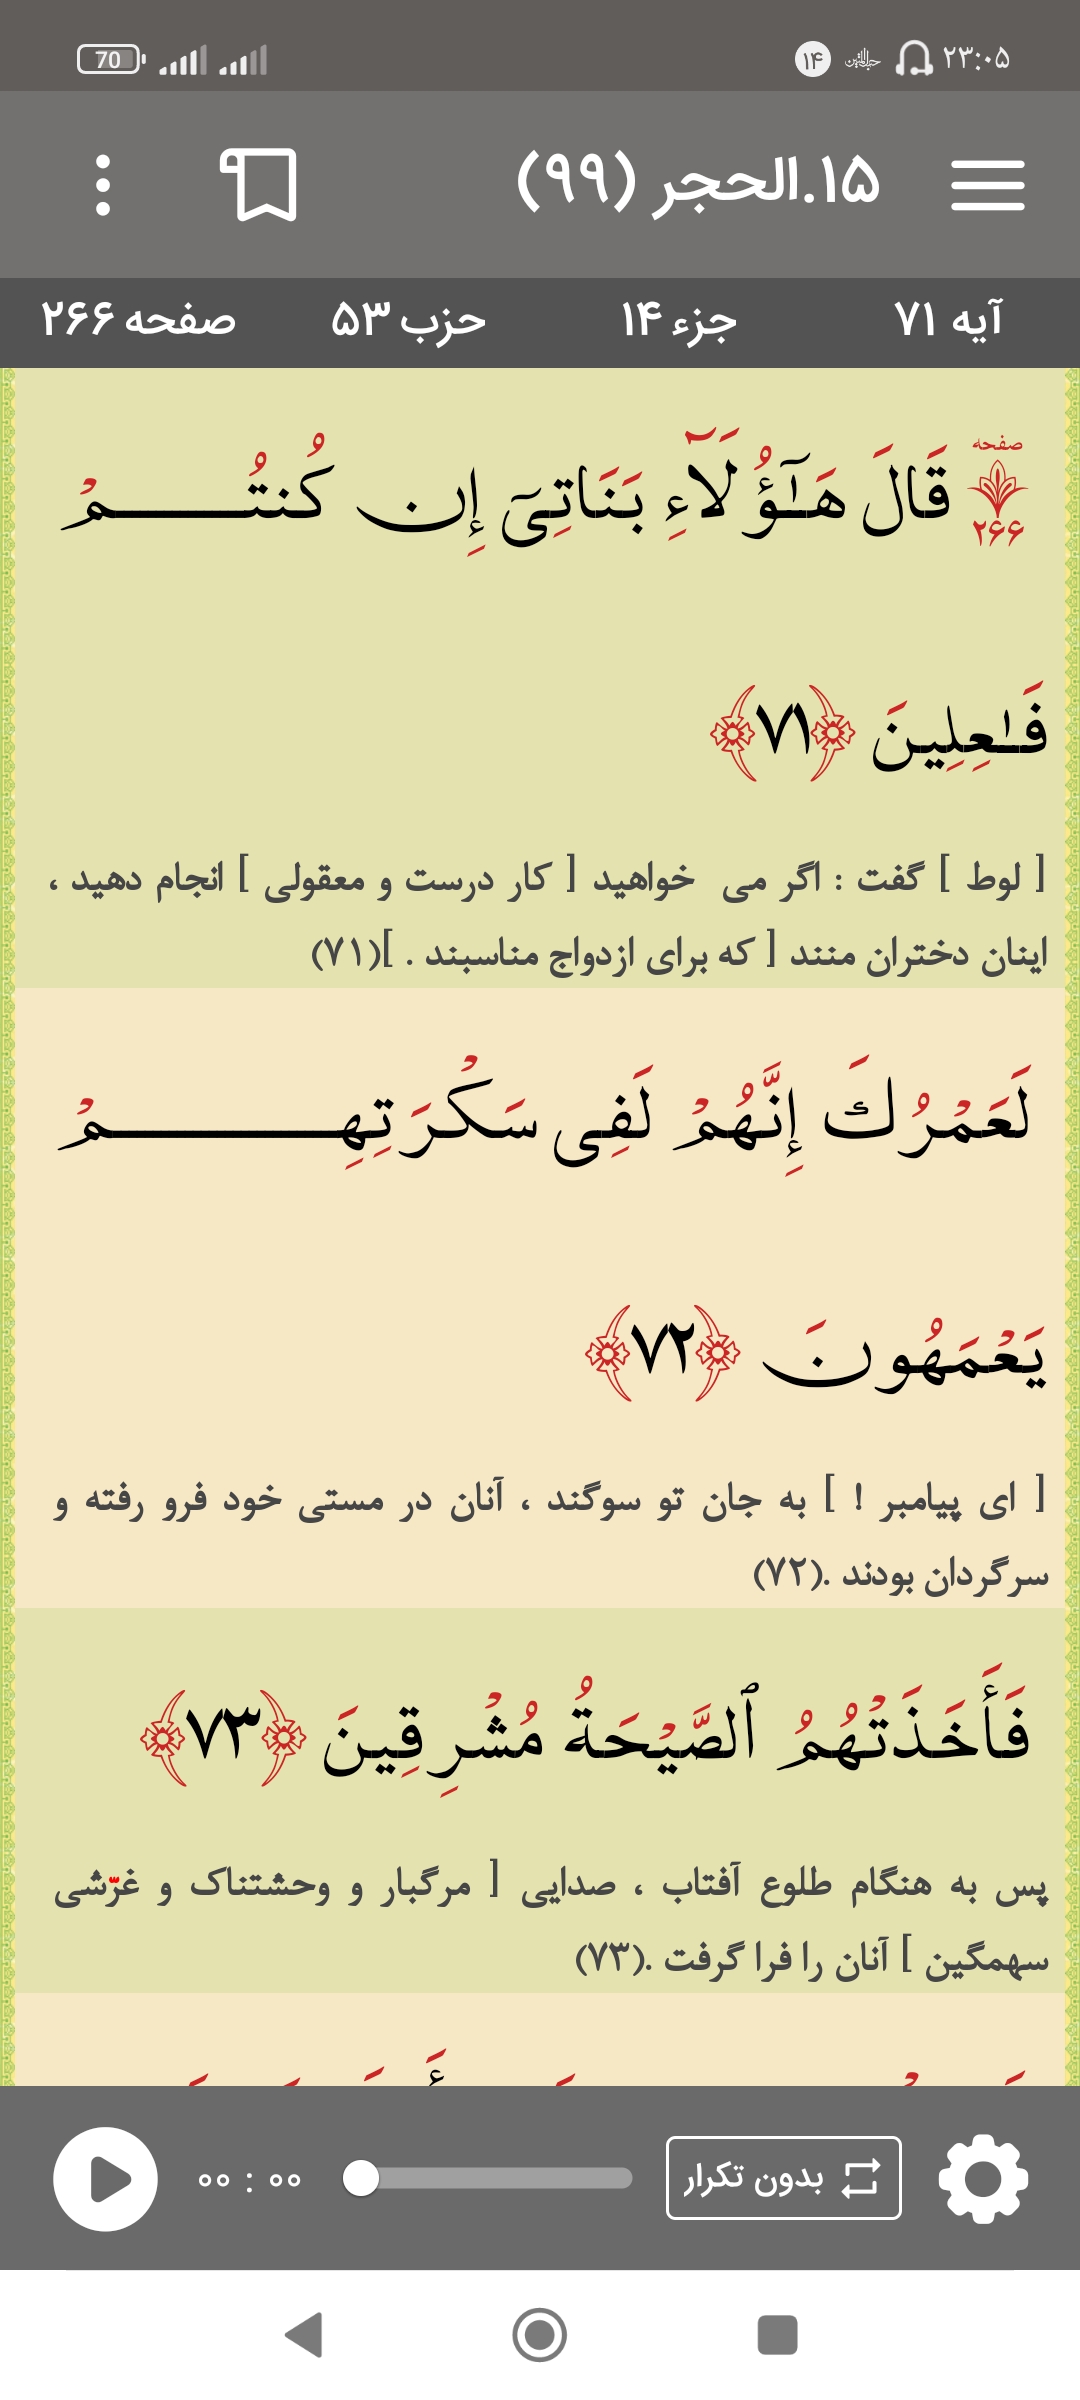 ۲۳:۰۵ ۱۴ 70
۱۵.الحجر (۹۹)
آیه ۷۱ جزء ۱۴ حزب ۵۳ صفحه ۲۶۶
صفحه
۲۶۶
قَالَ هَـٰٓؤُلَآءِ بَنَاتِىٓ إِن كُنتُـــــمْ
فَـٰعِلِينَ ﴿۷۱﴾
[ لوط ] گفت : اگر می خواهید [ کار درست و معقولی ] انجام دهید ،
اینان دختران منند [ که برای ازدواج مناسبند . ](۷۱)
لَعَمْرُكَ إِنَّهُمْ لَفِى سَكْرَتِهِـــــــــمْ
يَعْمَهُونَ ﴿۷۲﴾
[ ای پیامبر ! ] به جان تو سوگند ، آنان در مستی خود فرو رفته و
سرگردان بودند .(۷۲)
فَأَخَذَتْهُمُ ٱلصَّيْحَةُ مُشْرِقِينَ ﴿۷۳﴾
پس به هنگام طلوع آفتاب ، صدایی [ مرگبار و وحشتناک و غرّشی
سهمگین ] آنان را فرا گرفت .(۷۳)
بدون تکرار
۰۰ : ۰۰